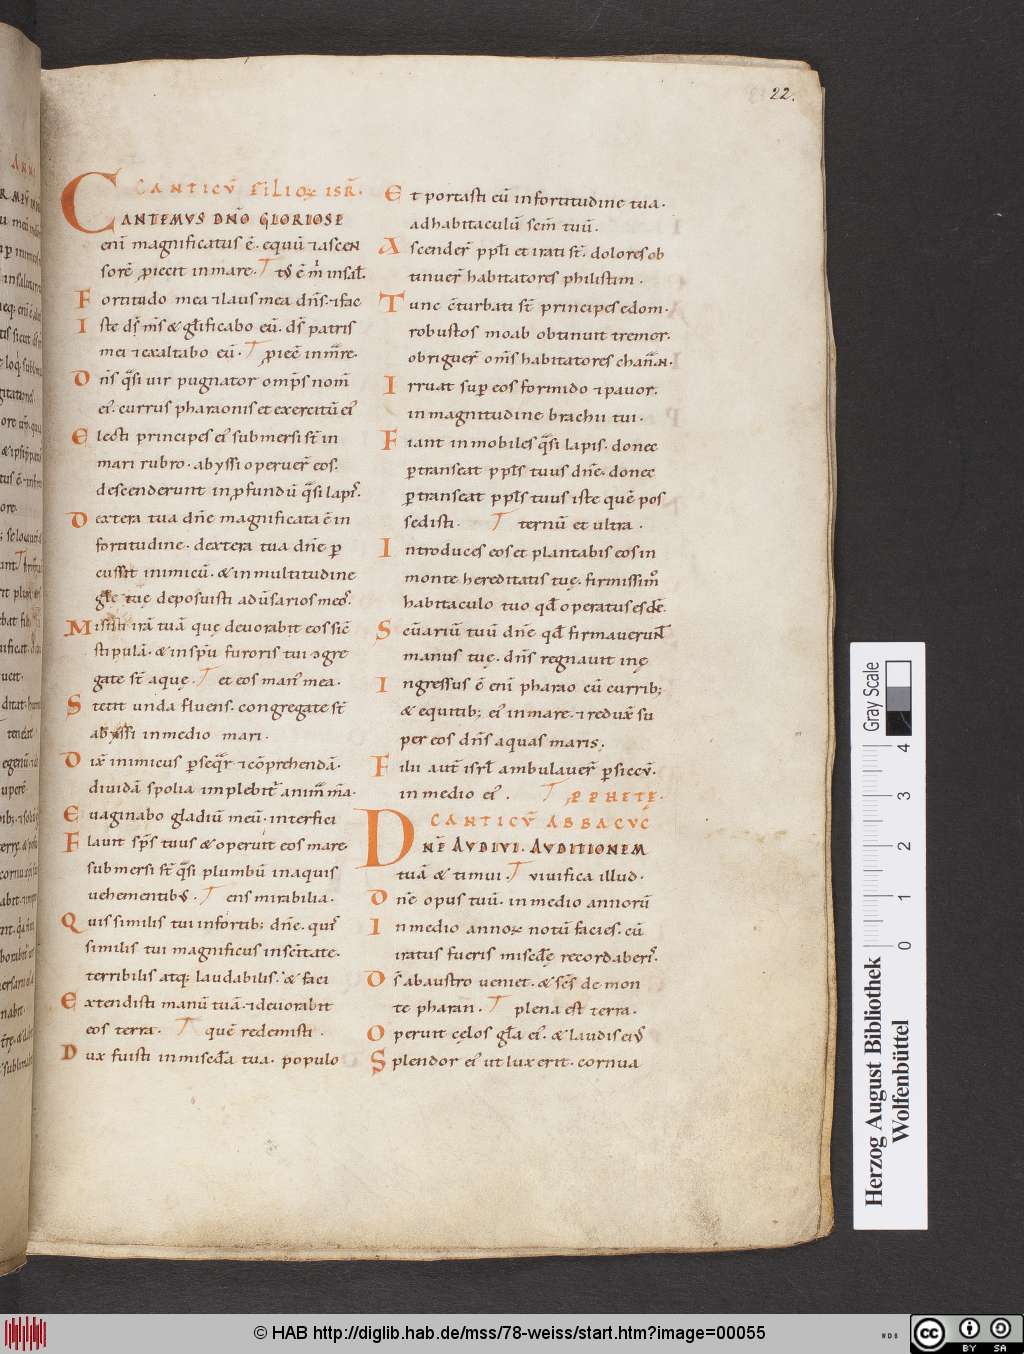 22.
CANTICŪ FILIOꝜ ISR̄.
CANTEMUS DNO GLORIOSE
eni magnificatus ē. equū ⁊ ascen
sorē ꝓiecit in mare. T t͛s ē m̄ in sal̄.
Fortitudo mea ⁊ laus mea dn̄s. ⁊ fac
Iste ds̄ m̄s & gl̄ificabo eū. ds̄ patris
mei ⁊ exaltabo eū. T ꝓiecē in m̄re.
Dn̄s q̄si uir pugnator omp̄s nom̄
ei᾽. currus pharaonis et exercitū ei᾽
Electi principes ei᾽ submersi st̄ in
mari rubro. abyssi operuer̄ eos.
descenderunt in ꝓfundū q̄si lapi᾽.
Dextera tua dn̄e magnificata ē in
fortitudine. dextera tua dn̄e ꝑ
cussit inimicū. & in multitudine
gl̄ę tuę deposuisti adūsarios meo᾽.
Misisti irā tuā quę deuorabit eos sic̄
stipulā. & in spū furoris tui ɔgre
gate st̄ aquę. T et eos man᾽ mea.
Stetit unda fluens. congregate st̄
abyssi in medio mari.
Dix̄ inimicus ꝑseq̄r ⁊ cōprehendā.
diuidā spolia inplebit᾽ anim̄ m̄a.
Euaginabo gladiū meū. interfici
Flauit sp̄s tuus & operuit eos mare.
submersi st̄ q̄si plumbū in aquis
uehementib᾽. T ens mirabilia.
Quis similis tui in fortib; dn̄e. quis
similis tui magnificus in sc̄itate.
terribilis atq; laudabilis. & faci
Extendisti manū tuā. ⁊ deuorabit
eos terra. T quē redemisti.
Dux fuisti in misc̄dia tua. populo
Et portasti eū in fortitudine tua.
ad habitaculū sc̄m tuū.
Ascender̄ ppl̄i et irati st̄. dolores ob
tinuer̄ habitatores philistim.
Tunc c̄turbati st̄ principes edom.
robustos moab obtinuit tremor.
obriguer̄ om̄s habitatores chan̄an.
Irruat sup eos formido ⁊ pauor.
in magnitudine brachii tui.
Fiant inmobiles q̄si lapis. donec
ꝑtranseat ppl̄s tuus dn̄e. donec
ꝑtranseat ppl̄s tuus iste quē pos
sedisti. T ternū et ultra.
Introduces eos et plantabis eos in
monte hereditatis tuę. firmissim̊
habitaculo tuo qd̄ operatus es dn̄e.
Sc̄uariū tuū dn̄e qd̄ firmauerunt
manus tuę. dn̄s regnauit in ę
Ingressus ē eni pharao cū currib;
& equitib; ei᾽ in mare. ⁊ redux̄ sup
per eos dn̄s aquas maris.
Filii aut̄ isrl̄ ambulauer̄ ꝑ siccū.
in medio ei᾽. T ꝓPHETĘ.
CANTICŪ ABBACUC
DNE AUDIUI. AUDITIONEM
tuā & timui. T uiuifica illud.
Dn̄e opus tuū. in medio annorū
In medio annoꝝ notū facies. cū
iratus fueris misc̄dię recordaberis.
Ds̄ ab austro ueniet. & sc̄s de mon
te pharan. T plena est terra.
Operuit cęlos gl̄a ei᾽. & laudis ei᾽
Splendor ei᾽ ut lux erit. cornua
Gray Scale
0 1 2 3 4
Herzog August Bibliothek
Wolfenbüttel
© HAB http://diglib.hab.de/mss/78-weiss/start.htm?image=00055
cc BY SA